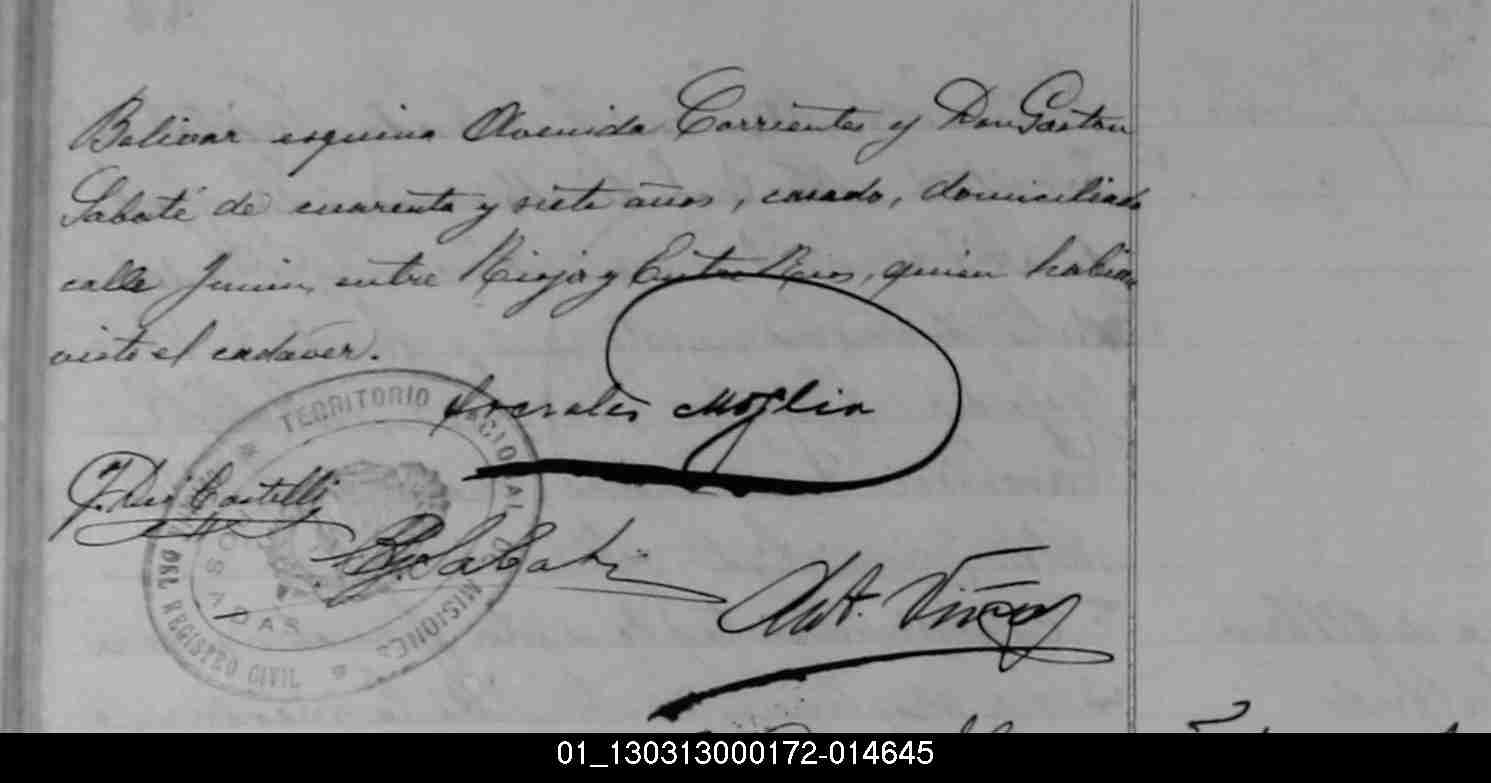 Bolivar esquina Avenida Corrientes y Don Gastón
Sabaté de cuarenta y siete años, casado, domiciliado
calle Junin entre Rioja y Entre Rios, quien habia
visto el cadáver.
Socrates Moglia
TERRITORIO NACIONAL DE MISIONES
DEL REGISTRO CIVIL
POSADAS
Castelli
G. Sabaté
Ant. Viñas
01_130313000172-014645